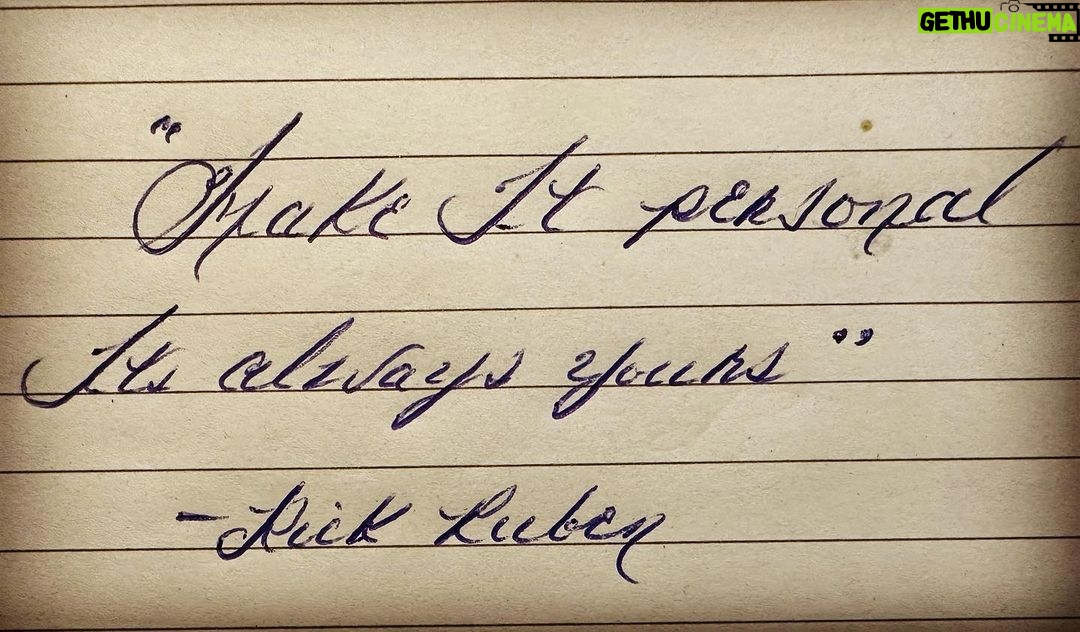 GETHUCINEMA
"Make It personal
Its always yours"
- Rick Ruben